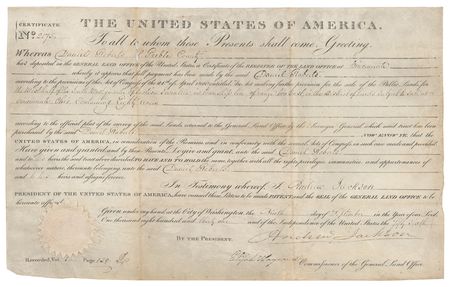 CERTIFICATE
THE UNITED STATES OF AMERICA.
To all to whom these Presents shall come, Greeting:
WHEREAS Daniel Roberts of Preble County
has deposited in the GENERAL LAND OFFICE of the UNITED STATES, a Certificate of the REGISTER OF THE LAND OFFICE at Cincinnati
whereby it appears that full payment has been made by the said Daniel Roberts
according to the provisions of the Act of Congress of the 24th of April, 1820, entitled "An Act making further provision for the sale of the Public Lands" for
Cincinnati Ohio, Containing Eighty acres
according to the official plat of the survey of the said Lands, returned to the General Land Office by the Surveyor General, which said tract has been
purchased by the said Daniel Roberts NOW KNOW YE, that the
UNITED STATES OF AMERICA, in consideration of the Premises, and in conformity with the several Acts of Congress, in such case made and provided,
Have given and granted, and by these Presents Do give and grant, unto the said Daniel Roberts
and to his heirs, the said tract above described; TO HAVE AND TO HOLD the same, together with all the rights, privileges, immunities, and appurtenances of
whatsoever nature, thereunto belonging, unto the said Daniel Roberts
and to his heirs and assigns forever.
In Testimony whereof, I, Andrew Jackson
PRESIDENT OF THE UNITED STATES OF AMERICA, have caused these Letters to be made PATENT, and the SEAL of the GENERAL LAND OFFICE to be
hereunto affixed.
Given under my hand, at the City of Washington, the day of in the Year of our Lord
one thousand eight hundred and thirty one and of the Independence of the United States the fifty sixth
BY THE PRESIDENT, Andrew Jackson
Elijah Hayward Commissioner of the General Land Office.
Recorded, Vol. Page